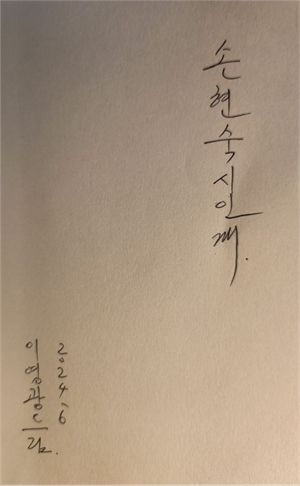 손현숙 시인께.
2024. 6
이영광 드림.